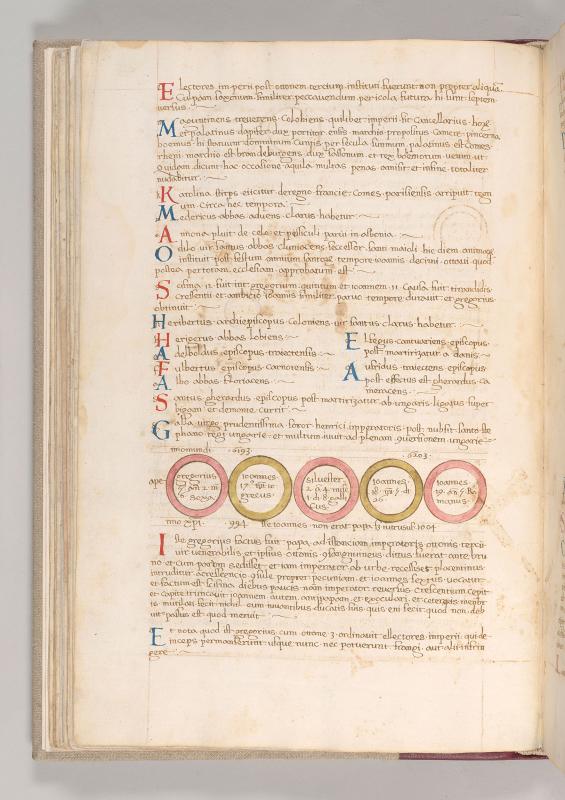 Electores imperii post ottonem tercium instituti fuerunt non propter aliquam
Culpam saxonum similiter peccavendum pericola futura hi sunt septem
versus
Maguntinens treverens Coloniens quilibet imperii fit Cancellarius hox
et palatinus dapifer dux portitor ensis marchio propositus Camere pincerna
boemus hi statuunt dominum Cunctis per secula summum palatinus est Comes
rheni marchio est brandeburgens dux Saxonum et rex boemorum verum ut
quidam dicunt hac occasione aquila multas penas amisit et in fine totaliter
nudabitur
Karolina stirps eicitur de regno francie Comes parisiensis arripuit regn
um Circa hec tempora
Medericus abbas aduens clarus habetur
Annona pluit de celo et pisciculi parui in
Odilo vir sanctus abbas cluniacens successor sancti maioli hic diem animarum
instituit post festum omnium sanctorum tempore ioannis decimi octaui quod
postea per totam ecclesiam approbatum est
Scisma 12 fuit inter gregorium quintum et ioannem 17 Causa fuit tirannidis
Crescentii et ambicio ioannis similiter paruo tempore durauit et gregorius
obtinuit
Heribertus archiepiscopus coloniens vir sanctus clarus habetur
Herigerus abbas lobiens
Adelboldus episcopus traiectensis
Fulbertus episcopus carnotensis
Albo abbas floriacens
Elfegus cantuariens episcopus
post martirizatur a danis
Ausfridus traiectens episcopus
post effectus est gherardus ca
meracens
Sanctus gherardus episcopus post martirizatur ab ungaris ligatus super
bigam et demone currit
Galla virgo prudentissima soror henrici imperatoris post nubsit sancto ste
phano regi ungarie et multum iuuit ad plenam conversionem ungarie
nno mundi 6193 6203
ape
gregorius
5 an 2 m
6 Saxo
ioannes
17 m 10
grecus
siluester
2 4 mise
1 d 8 galli
Cus
ioannes
18 m 5 d
26
ioannes
19 an 5 Ro
manus
nno xpi 994 Iste ioannes non erat papa sed intrusus 1004
Iste gregorius factus fuit papa ad instanciam imperatoris ottonis tercii
vir venerabilis et ipsius ottonis consanguineus dictus fuerat ante bru
no et cum parum sedisset et iam imperator ab urbe recessisset placentinus
intruditur a crescencio consule propter pecuniam et ioannes sextus vocatur
et factum est scisma diebus paucis nam imperator reversus crescentium cepit
et capite truncauit ioannem autem antipapam et exoculari et ceteris membris
mutilari fecit nichil eum iuuantibus ducatis suis quis eni fecit quod non deb
uit passus est quod meruit
Et nota quod iste gregorius cum ottone 3 ordinauit ellectores imperii qui de
inceps permanserunt usque nunc nec potuerunt frangi aut alii infrin
gere